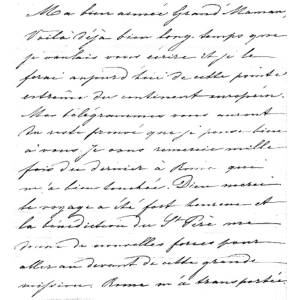 Ma bien aimée Grand'Maman,
Voilà déjà bien long-temps que
je voulais vous écrire et je le
ferai aujourd'hui de cette pointe
extrême du continent européen.
Mes télégrammes vous auront
du reste prouvé que je pense bien
à vous. Je vous remercie mille
fois du dernier à Rome qui
m'a bien touchée. Dieu merci
le voyage a été fort heureux et
la bénédiction du St Père me
donne de nouvelles forces pour
aller au devant de cette grande
mission. Rome m'a transportée